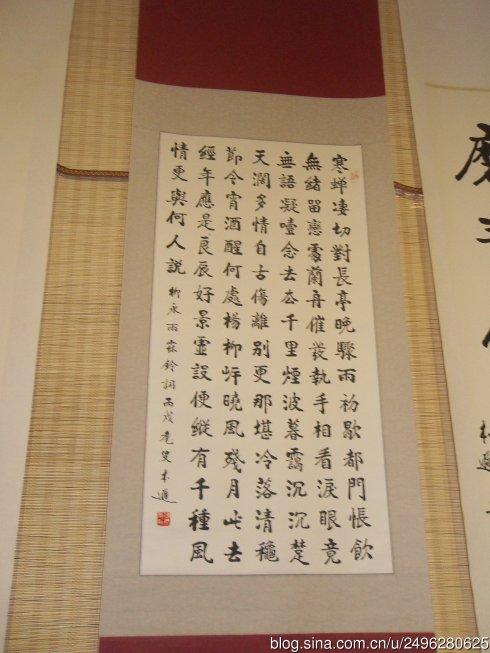 寒蝉凄切對長亭晚驟雨初歇都門帳飲
無緒留戀處蘭舟催發執手相看淚眼竟
無語凝噎念去去千里煙波暮靄沉沉楚
天濶多情自古傷離別更那堪冷落清穐
節今宵酒醒何處楊柳岍曉風殘月此去
經年應是良辰好景虛設便縱有千種風
情更與何人說 柳永雨霖鈴詞丙戌
blog.sina.com.cn/u/2496280625